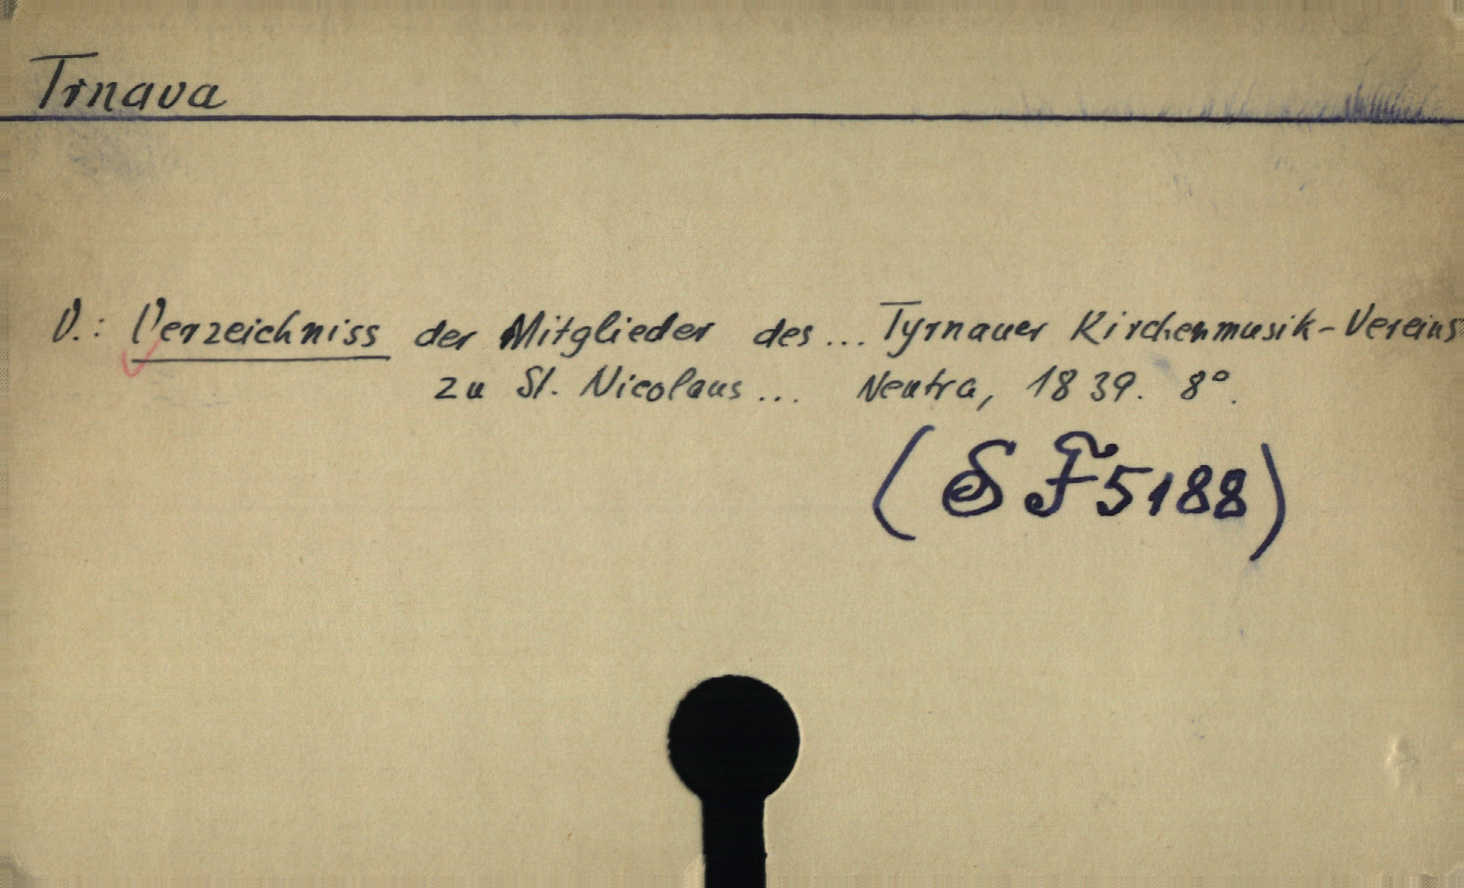 Trnava
V.: Verzeichniss der Mitglieder des... Tyrnauer Kirchenmusik-Vereins
zu St. Nicolaus... Neutra, 1839. 8°.
(SF5188)